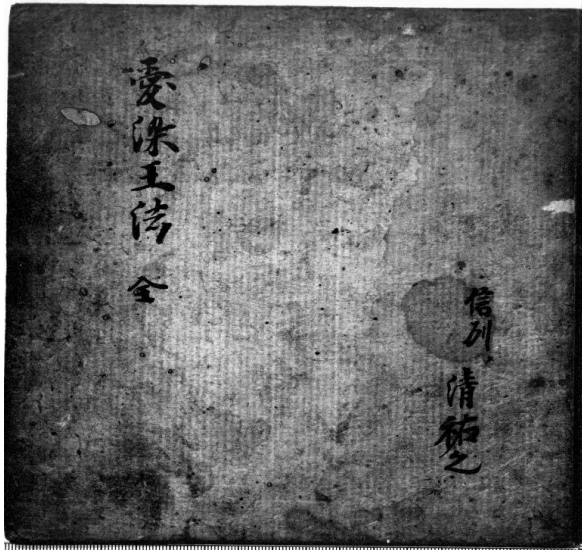 愛染王法 全
信列
清祐之